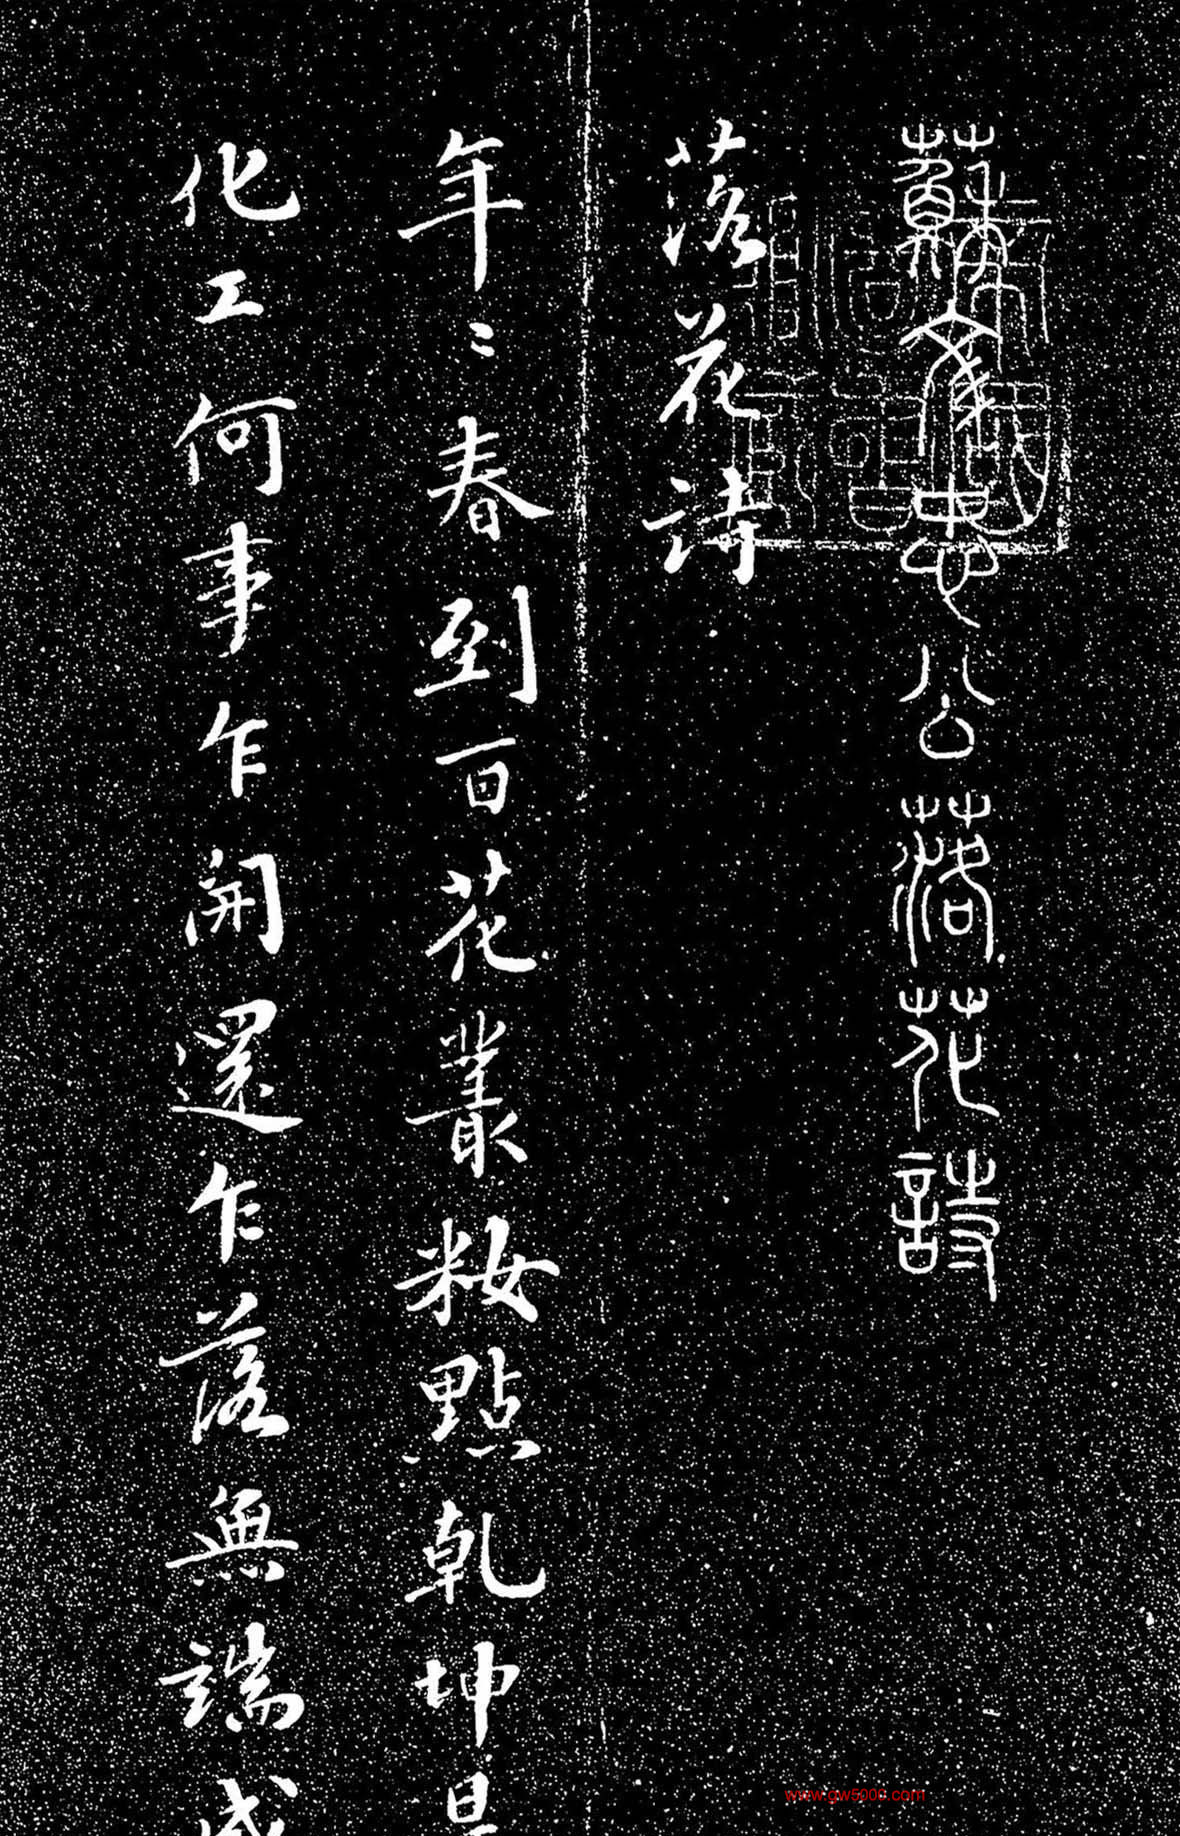 蘇文忠公落花詩
落花詩
年〻春到百花叢籹點乾坤
化工何事乍開還乍落無端
www.gw5000.com